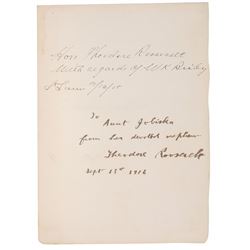 Hon Theodore Roosevelt
With regards of W K Bixby
St Louis
To
Aunt
from her devoted nephew
Theodore Roosevelt
Sept 15th 1916